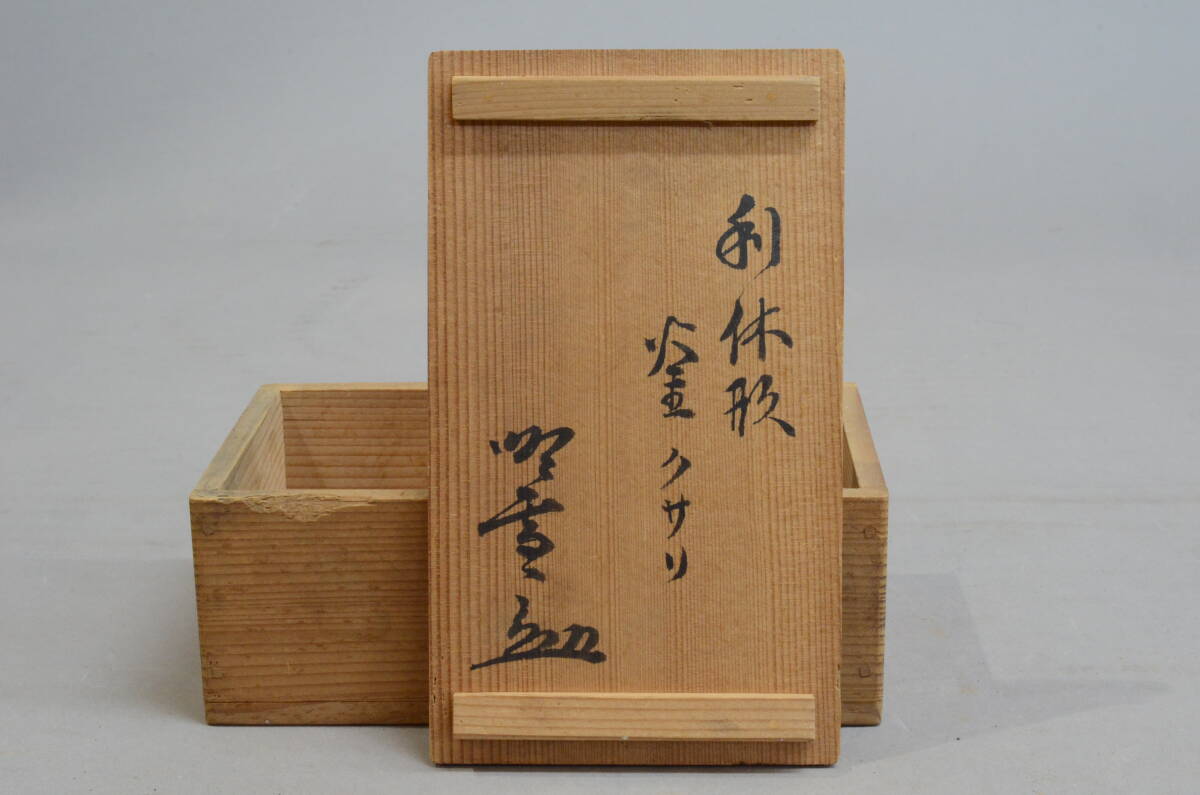 利休形
釜クサリ